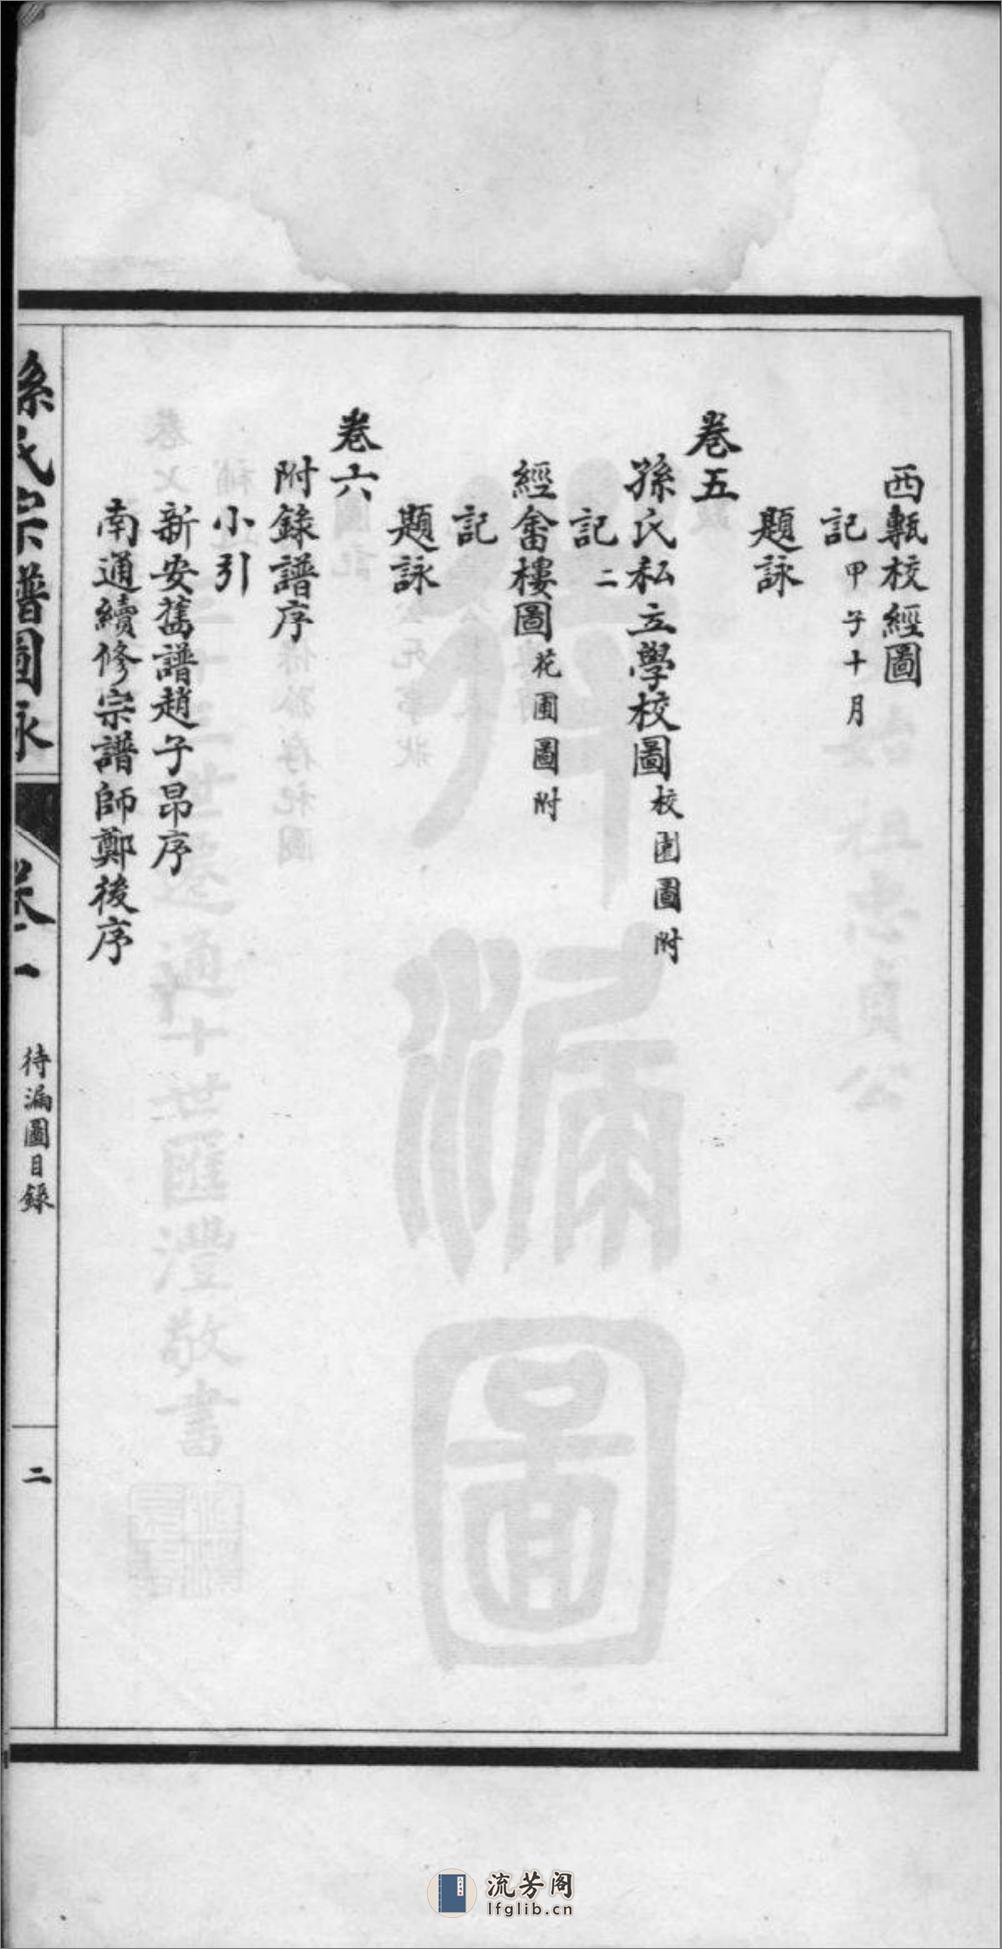 西甎校經圖
記 甲子十月
題詠
卷五
孫氏私立學校圖 校園圖附
記 二
經畬樓圖 花圃圖附
記
題詠
卷六
附錄譜序
小引
新安舊譜趙子昂序
南通續修宗譜師鄭後序
孫氏宗譜圖詠 卷一 待漏圖目錄 二
待漏圖
十世匯灃敬書
流芳阁
lfglib.cn